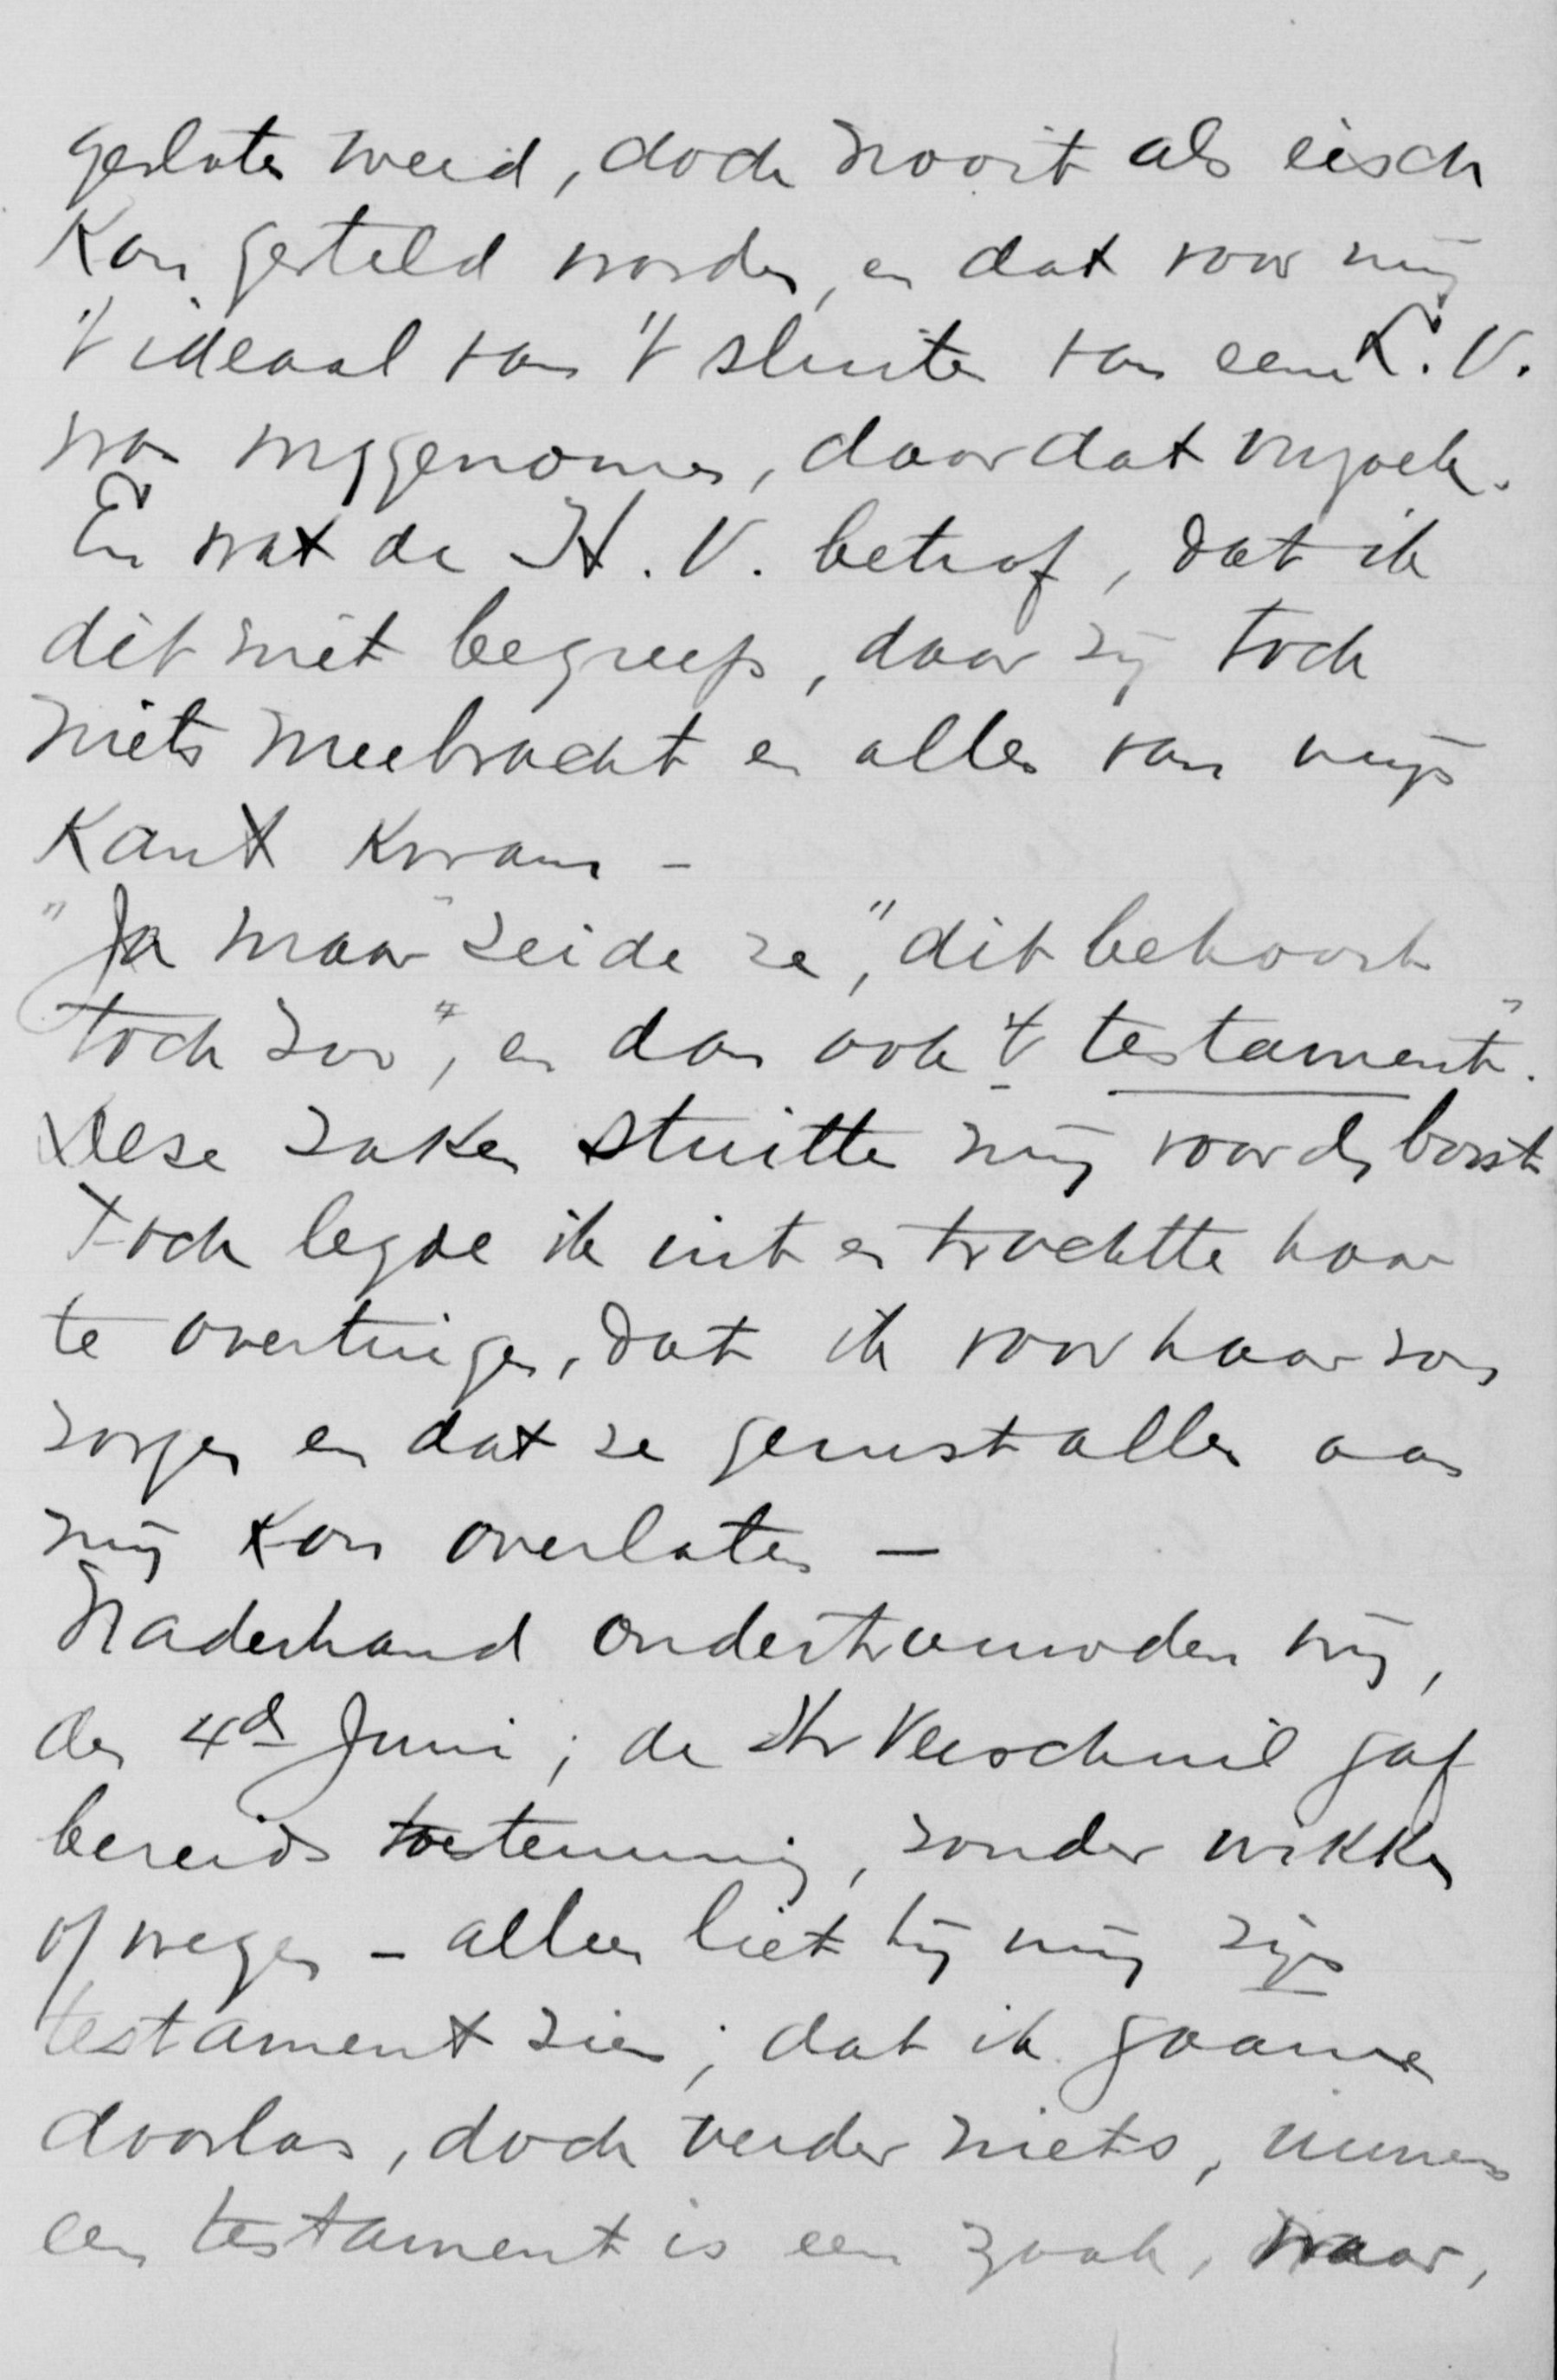 gesloten werd, doch nooit als eisch
kan gesteld worden, en dat voor mij
't ideaal van 't sluiten van een L.V.
was weggenomen, door dat verzoek.
En wat de H.V. betrof, dat ik
dit niet begreep, daar zij toch
niets meebracht en alles van mijn
kant kwam -
"Ja maar" zeide ze, "dit behoort
toch zoo", en dan ook 't testament".
Deze zaken stuitten mij voor de borst
Toch legde ik uit en trachtte haar
te overtuigen, dat ik voor haar zou
zorgen en dat ze gerust alles aan
mij kon overlaten —
Naderhand ondertrouwden wij,
den 4de Juni; de Hr Verschuil gaf
bereids toestemming, zonder wikken
of wegen - alleen liet hij mij zijn
testament zien; dat ik gaarne
doorlas, doch verder niets, immers
een testament is een zaak, waar,